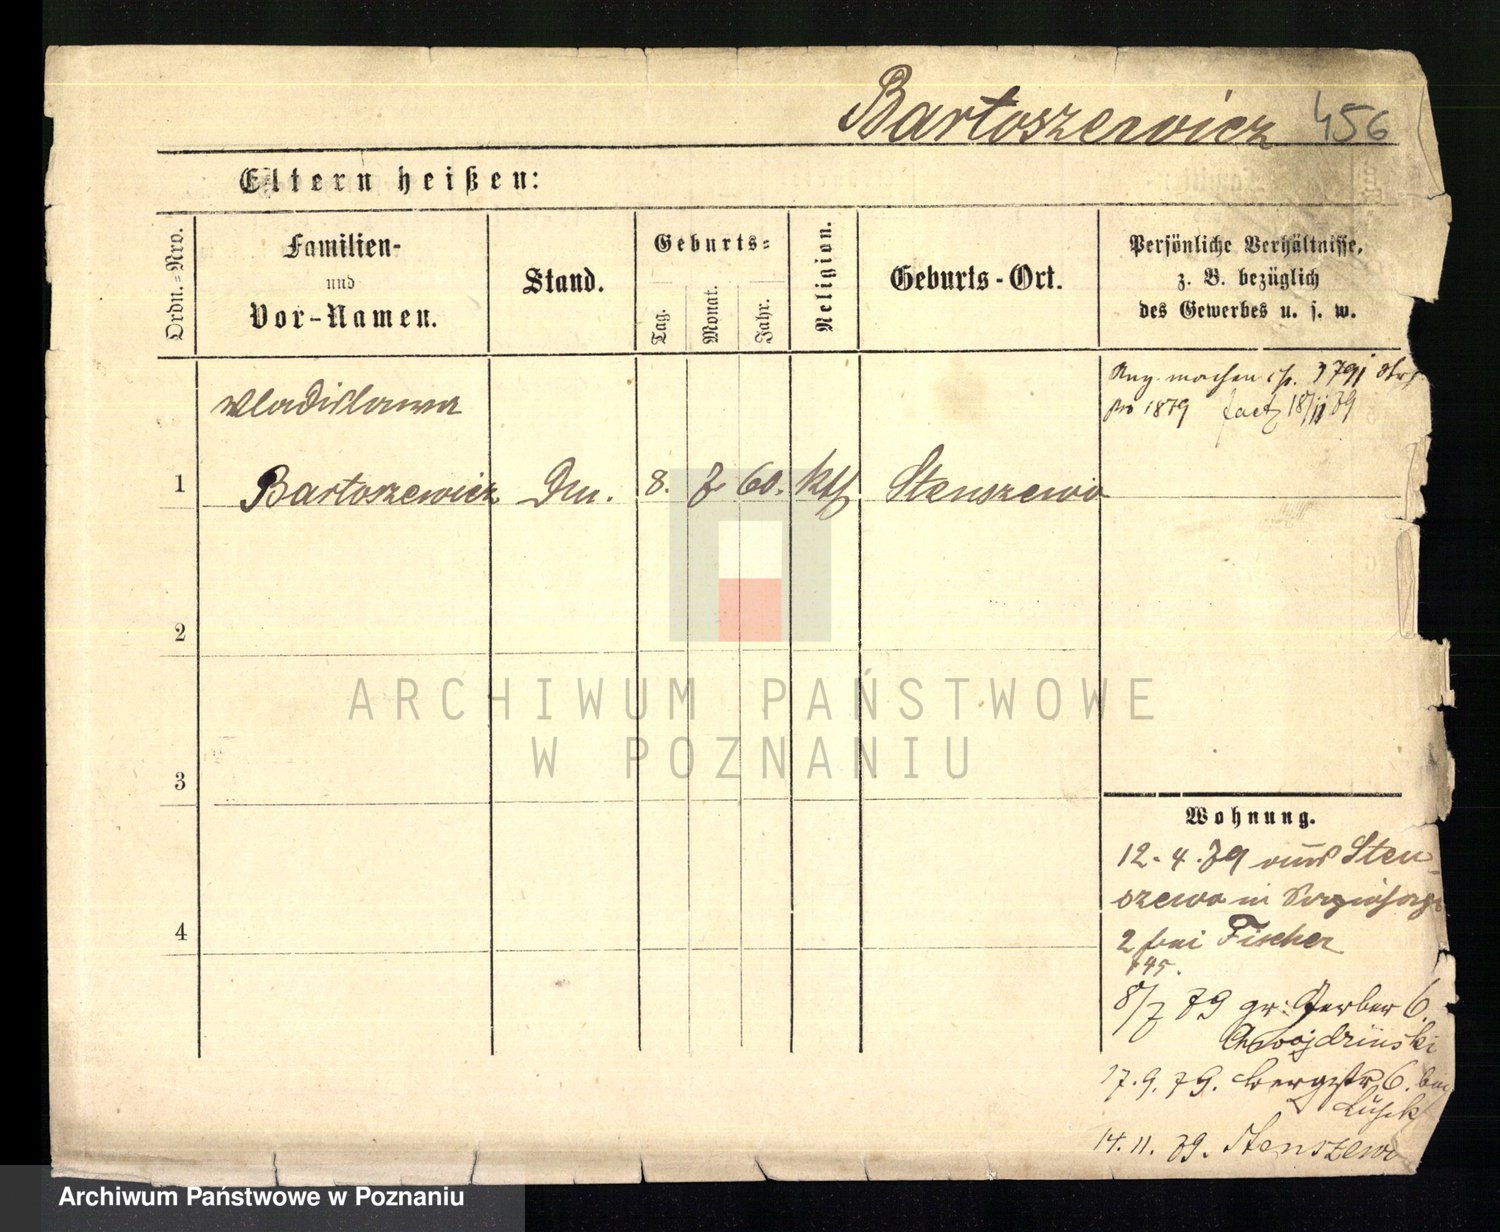 Bartoszewicz 456
Eltern heißen:
Ordn.=Nro.
Familien-
und
Vor-Namen.
Stand.
Geburts=
Tag.
Monat.
Jahr.
Religion.
Geburts-Ort.
Persönliche Verhältnisse,
z. B. bezüglich
des Gewerbes u. s. w.
pro 1879 18/11 79
Wladislawa
1 Bartoszewicz Dm. 8. 7 60. kth Stenszewo
2
3
4
Wohnung.
12.4.79 aus Sten-
szewo in
2 bei Fischer
145.
8/7 79 gr: Gerber 6.
Chwojdzinski
17.9.79. Bergstr 6. bei
14.11.79. Stenszewo
ARCHIWUM PAŃSTWOWE
W POZNANIU
Archiwum Państwowe w Poznaniu